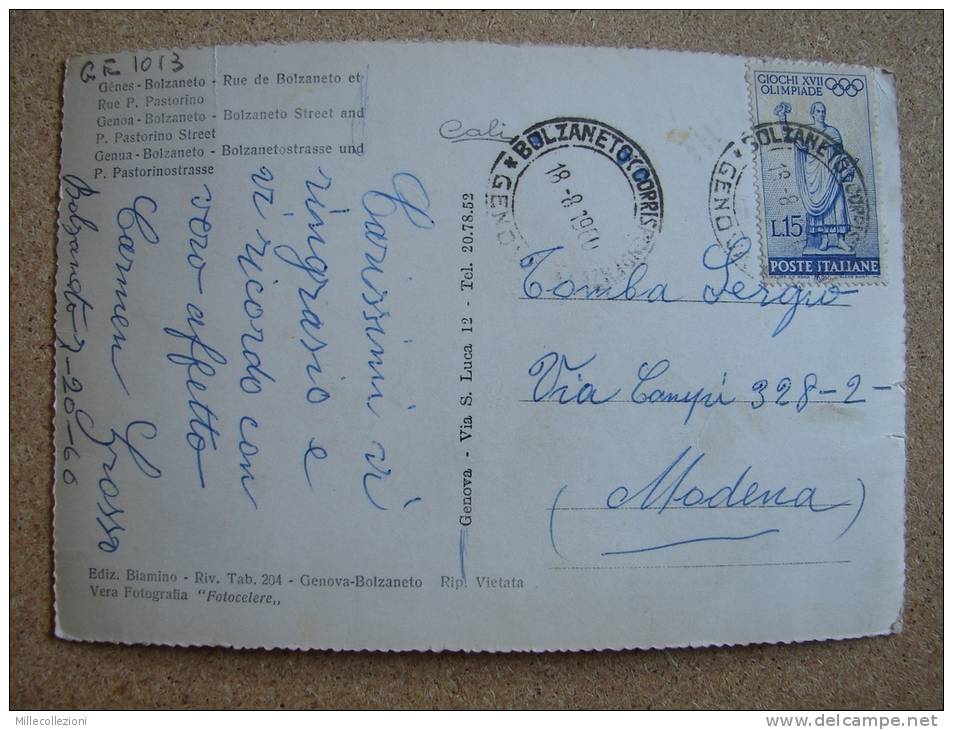 GE 1013
Gênes - Bolzaneto - Rue de Bolzaneto et
Rue P. Pastorino
Genoa - Bolzaneto - Bolzaneto Street and
P. Pastorino Street
Genua - Bolzaneto - Bolzanetostrasse und
P. Pastorinostrasse
Carissimi vi
ringrasio e
vi ricordo con
vero affetto
Carmen Grosso
Genova - Via S. Luca 12 - Tel. 20.78.52
BOLZANETO (CORRISPONDENZE)
18-8 1960
GENOVA
BOLZANETO (CORRIS
GENOVA
GIOCHI XVII
OLIMPIADE
L.15
POSTE ITALIANE
Tomba Sergio
Via Campi 328-2-
(Modena)
Ediz. Biamino - Riv. Tab. 204 - Genova-Bolzaneto Rip. Vietata
Vera Fotografia "Fotocelere"
Millecollezioni
www.delcampe.net